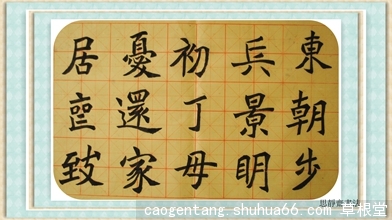 東朝步
兵景眀
初丁母
憂還家
居堊致
思靜齋書法
caogentang.shuhua66.com 草根堂